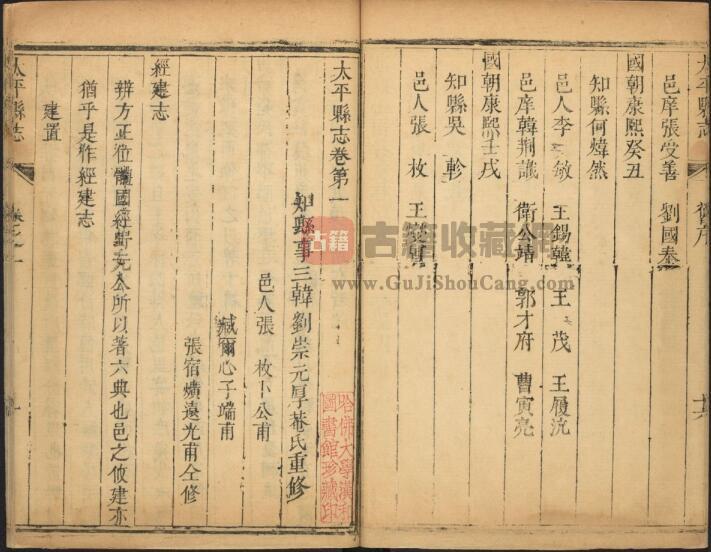 太平縣志
邑庠張受善　劉國泰
國朝康熙癸丑
知縣何煒然
邑人李　敏　王錫韓　王　茂　王履沆
邑庠韓荆識　衛公靖　郭才府　曹寅亮
國朝康熙壬戌
知縣吳　軫
邑人張　枚　王
太平縣志卷第一
知縣事三韓劉崇元厚菴氏重修
邑人張　枚卜公甫
臧爾心子端甫
張宿爌遠光甫仝修
經建志
辨方正位體國經野元公所以著六典也邑之攸建亦
猶乎是作經建志
建置
太平縣志
哈佛大學漢和
圖書館珍藏印
古籍
古籍收藏網
www.GuJiShouCang.com